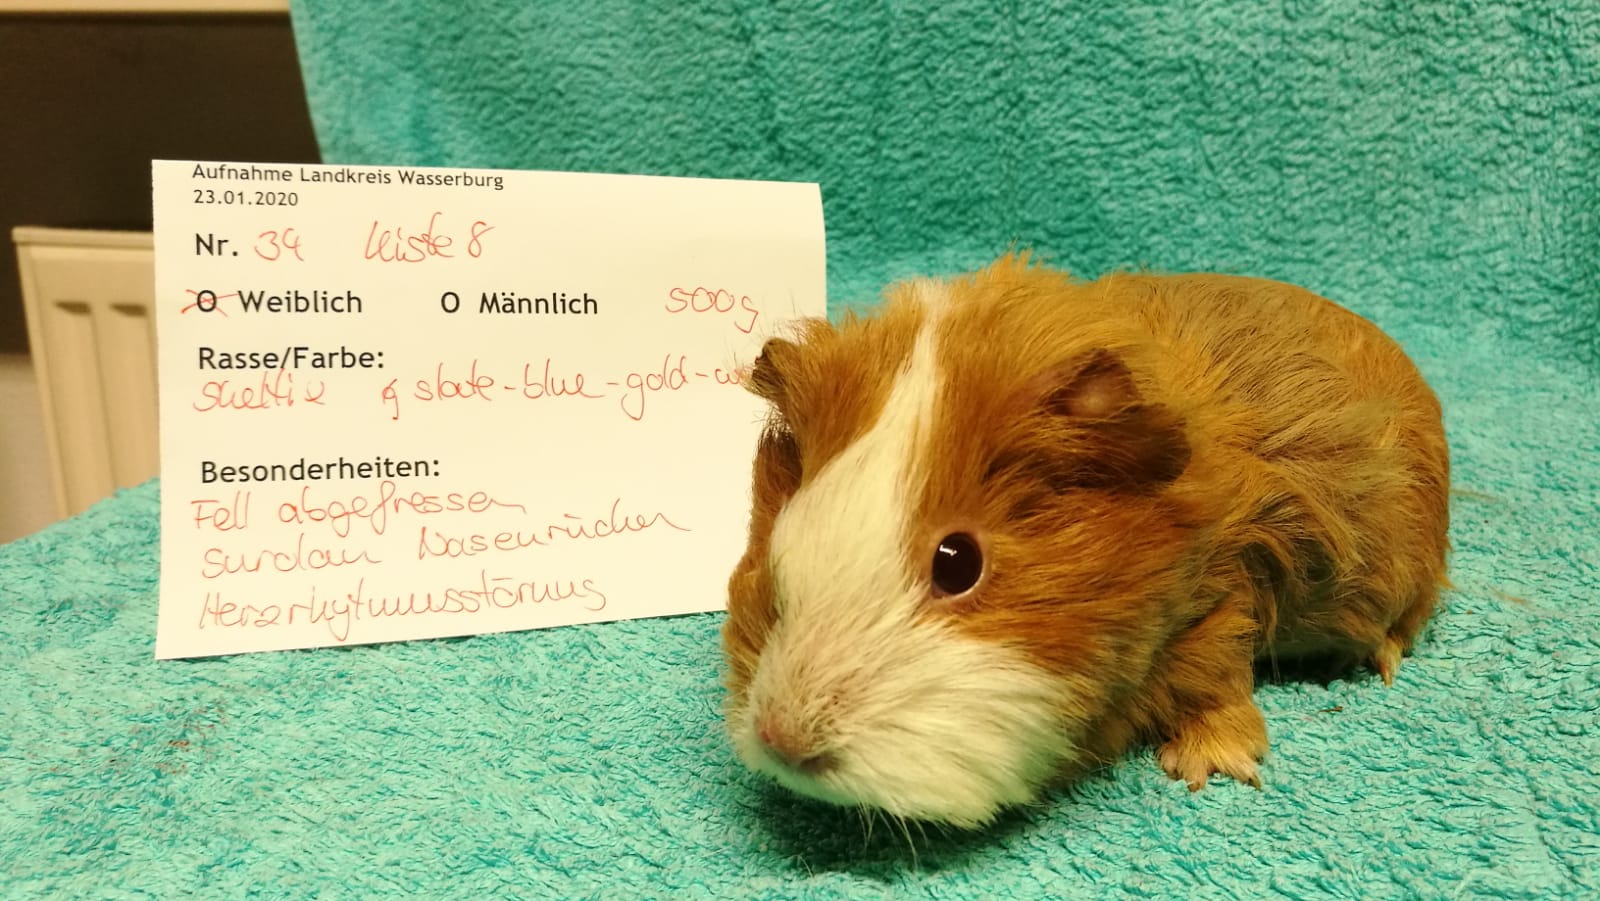 Aufnahme Landkreis Wasserburg
23.01.2020
Nr. 34 Kiste 8
O Weiblich O Männlich 500g
Rasse/Farbe:
Sheltie slate-blue-gold-w
Besonderheiten:
Fell abgefressen
Nasenrücken
Herzrhytmusstörung